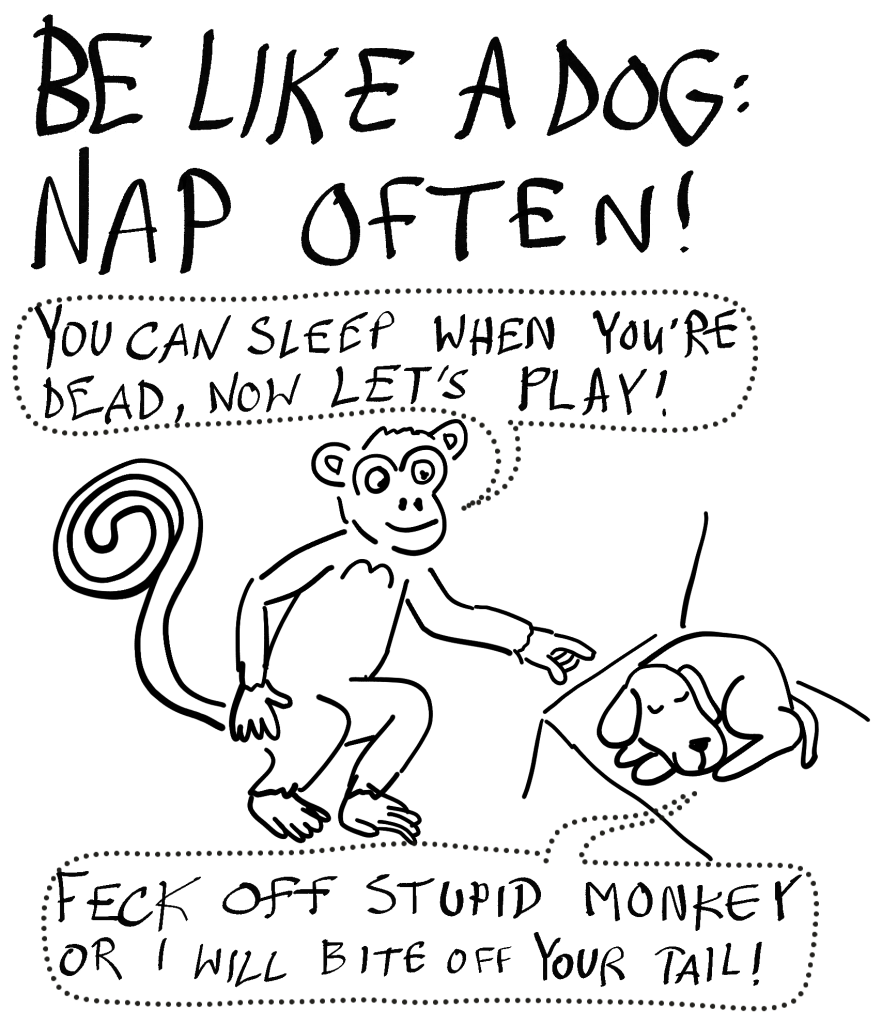 BE LIKE A DOG:
NAP OFTEN!
YOU CAN SLEEP WHEN YOU'RE
DEAD, NOW LET'S PLAY!
FECK OFF STUPID MONKEY
OR I WILL BITE OFF YOUR TAIL!